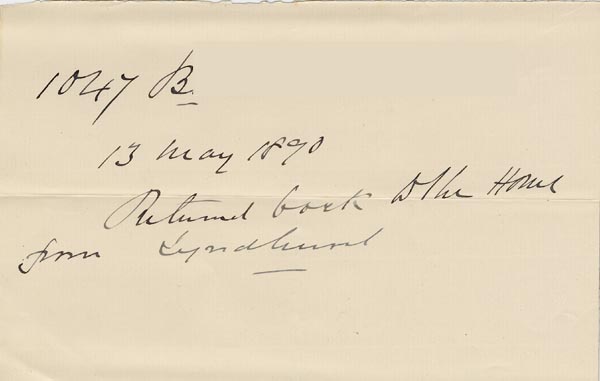 1047 B
13 May 1890
Returned back to the Home
from Lyndhurst